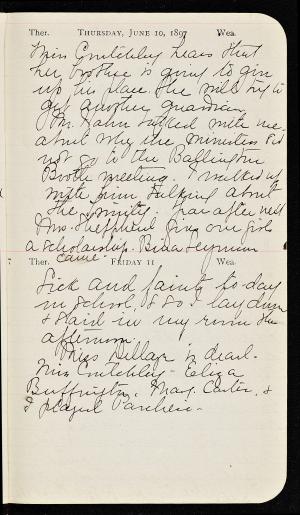 Ther. THURSDAY, JUNE 10, 1897 Wea.
Miss Crutchley hears that
her brother is going to give
up his place. She will try to
get another guardian.
Mr. Hahn talked with me
about why the ministers did
not go to the Ballington
Booth meeting. I walked up
with him talking about
the
Mrs. Sheppard give one girl
a scholarship. Seymour
came.
Ther. FRIDAY 11 Wea.
Sick and faint to-day
in school, & so I lay down
& staid in my room the
afternoon.
Miss is dead.
Miss Crutchley - Eliza
Buffington, May Carter, &
I played